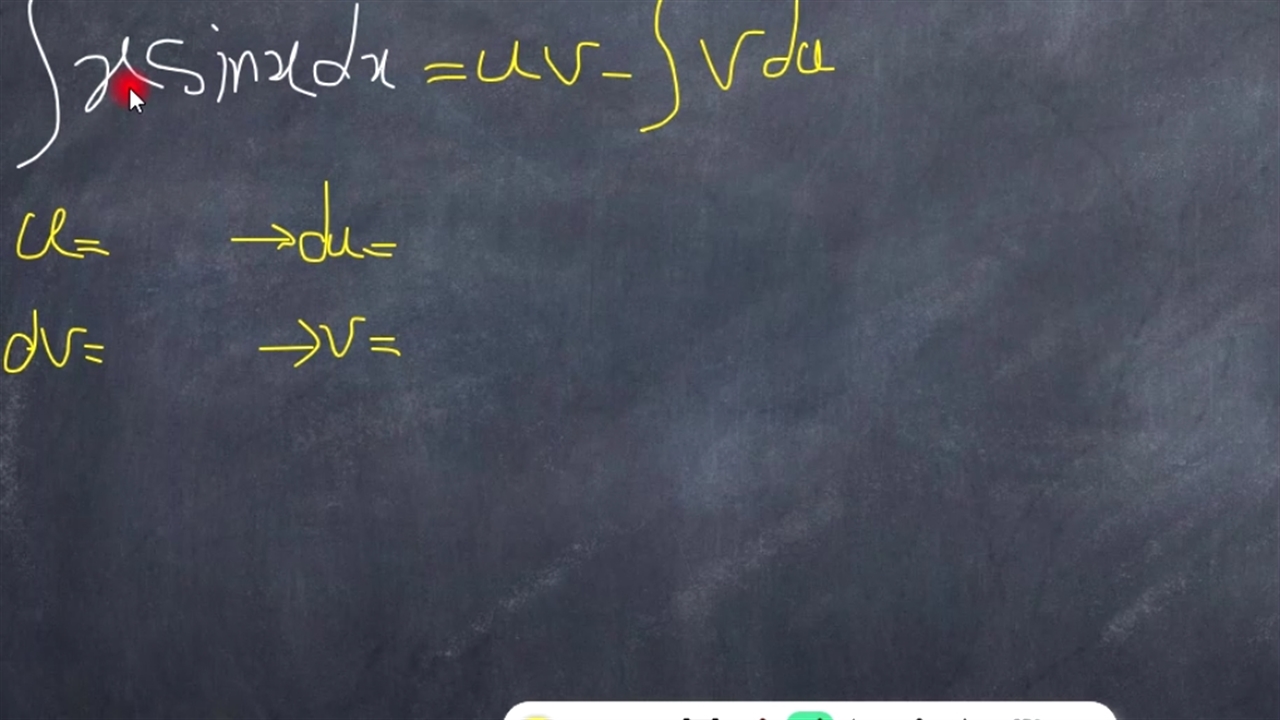 ∫ x sin x dx = uv - ∫ v du
u = → du =
dv = → v =